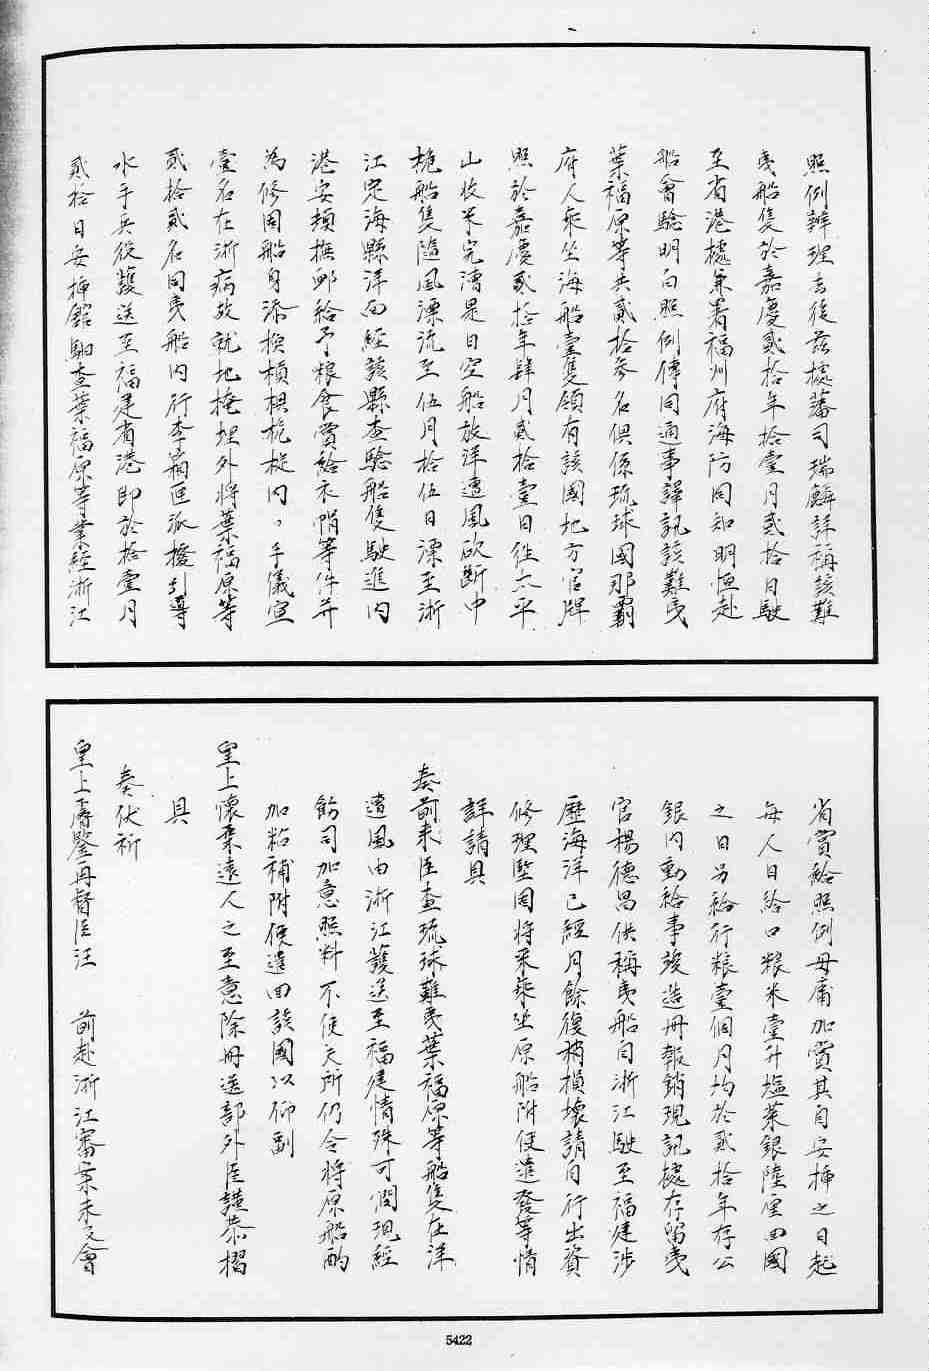 照例辦理去後茲據藩司瑞麟詳稱該難
夷船隻於嘉慶貳拾年拾壹月貳拾日駛
至省港據兼署福州府海防同知明恒赴
船會驗明白照例傳同通事譯訊該難夷
葉福原等共貳拾參名俱係琉球國那霸
府人乘坐海船壹隻領有該國地方官牌
照於嘉慶貳拾年肆月貳拾壹日往太平
山收米完漕是日空船放洋遭風砍斷中
桅船隻隨風漂流至伍月拾伍日漂至浙
江定海縣洋面經該縣查驗船隻駛進內
港安頓撫卹給予粮食賞給衣帽等件并
為修固船身添換槓椇桅椗內水手儀宣
壹名在浙病故就地掩埋外將葉福原等
貳拾貳名同夷船內行李箱匣派撥引導
水手兵役護送至福建省港即於拾壹月
貳拾日安插館馹查葉福原等業經浙江
省賞給照例毋庸加賞其自安插之日起
每人日給口粮米壹升塩菜銀陸厘回國
之日另給行粮壹個月均於貳拾年存公
銀內動給事竣造冊報銷現訊據存留夷
官楊德昌供稱夷船自浙江駛至福建涉
歷海洋已經月餘復稍損壞請自行出資
修理堅固將乘坐原船附便遣發等情
詳請具
奏前來臣查琉球難夷葉福原等船隻在洋
遭風由浙江護送至福建情殊可憫現經
飭司加意照料不使失所仍令將原船酌
加粘補附便遣回該國以仰副
皇上懷柔遠人之至意除冊送部外臣謹恭摺
具
奏伏祈
皇上睿鑒再督臣汪 前赴浙江審案未及會
5422